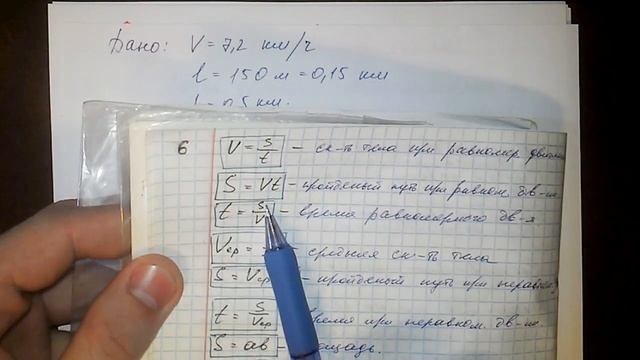 Дано: V = 7,2 км/ч
l = 150 м = 0,15 км
км.
6 V = S/t – ск-ть тела при равномер
S = Vt – пройденый путь при равном. дв-
t = S/V – время равномерного дв-я
Vср = – средняя ск-ть тела
S = Vср – пройденый путь при неравн
t = S/Vср время при неравном. дв-
S = ab площадь.